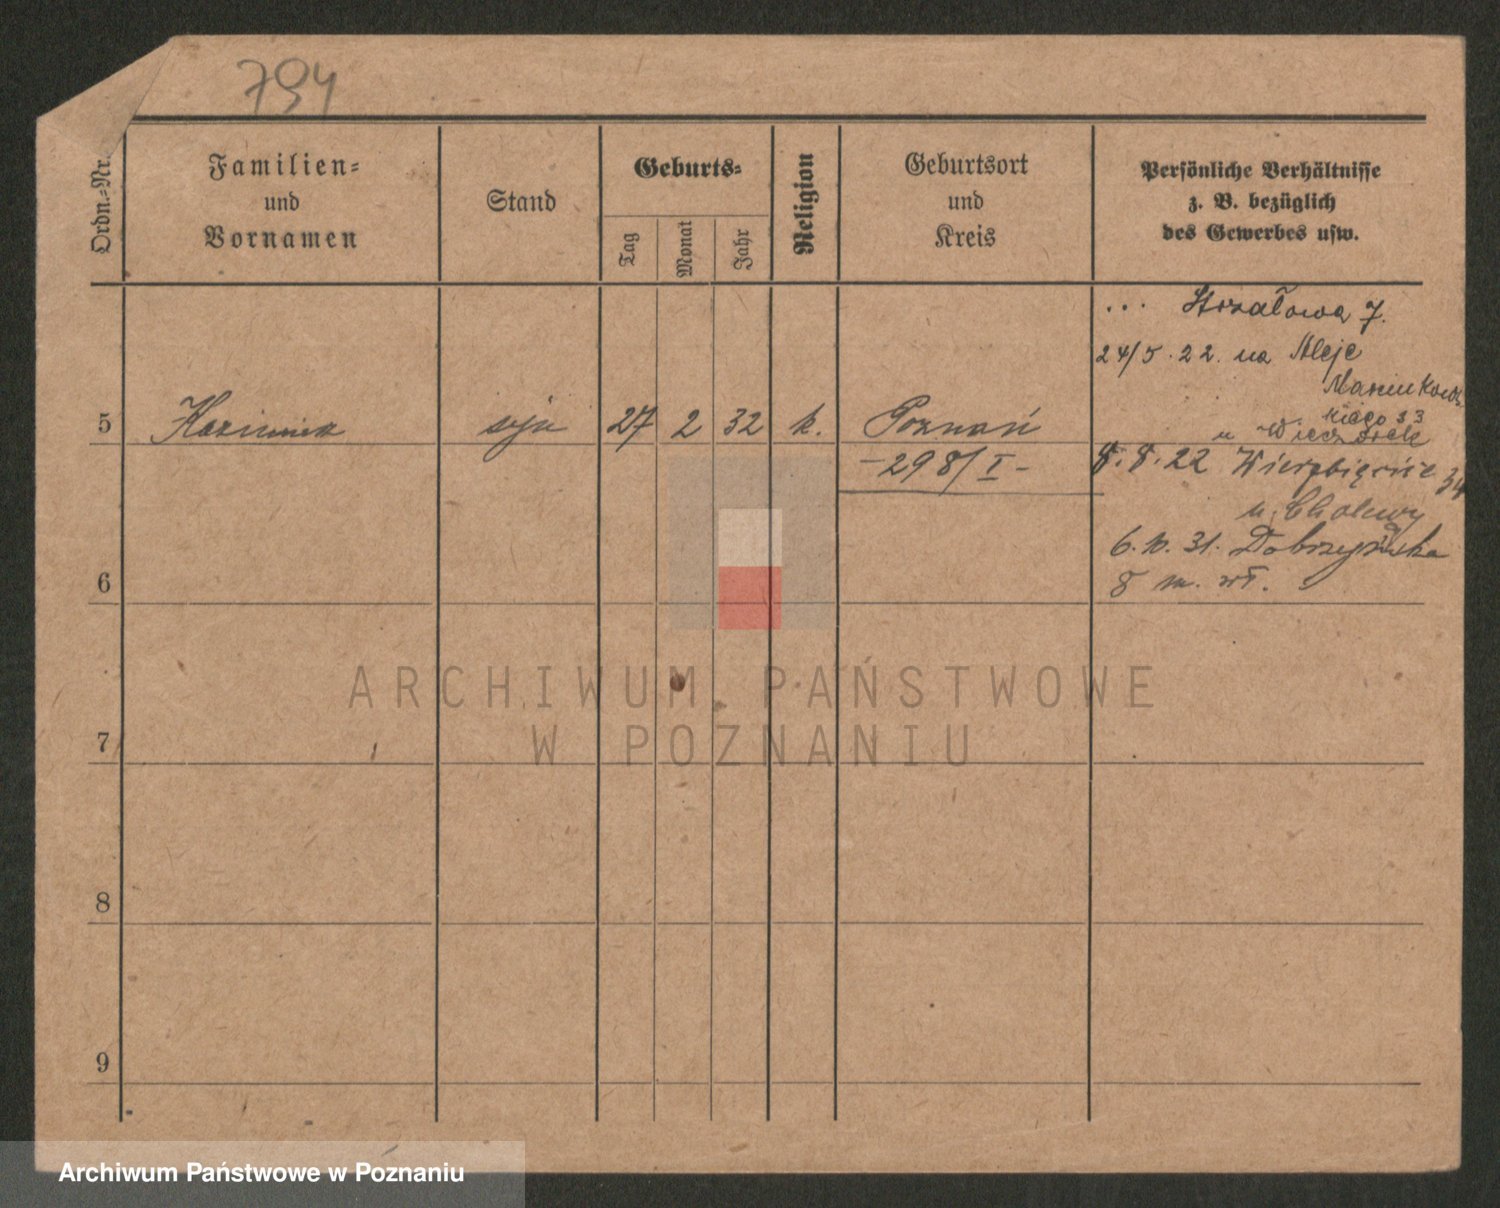 794
Ordn.=Nr.
Familien=
und
Vornamen
Stand
Geburts=
Tag
Monat
Jahr
Religion
Geburtsort
und
Kreis
Persönliche Verhältnisse
z. B. bezüglich
des Gewerbes usw.
... Strzałowa 7.
24/5.22. na Aleje
Marcinkows
kiego 33
5 Kazimierz syn 27 2 32 k. Poznań
u Wieczorek
-298/I-
8.8.22 Wierzbięcice 34
u Cholewy
6.10.31. Dobrzyńska
6
8 m. wł.
ARCHIWUM PAŃSTWOWE
W POZNANIU
7
8
9
Archiwum Państwowe w Poznaniu